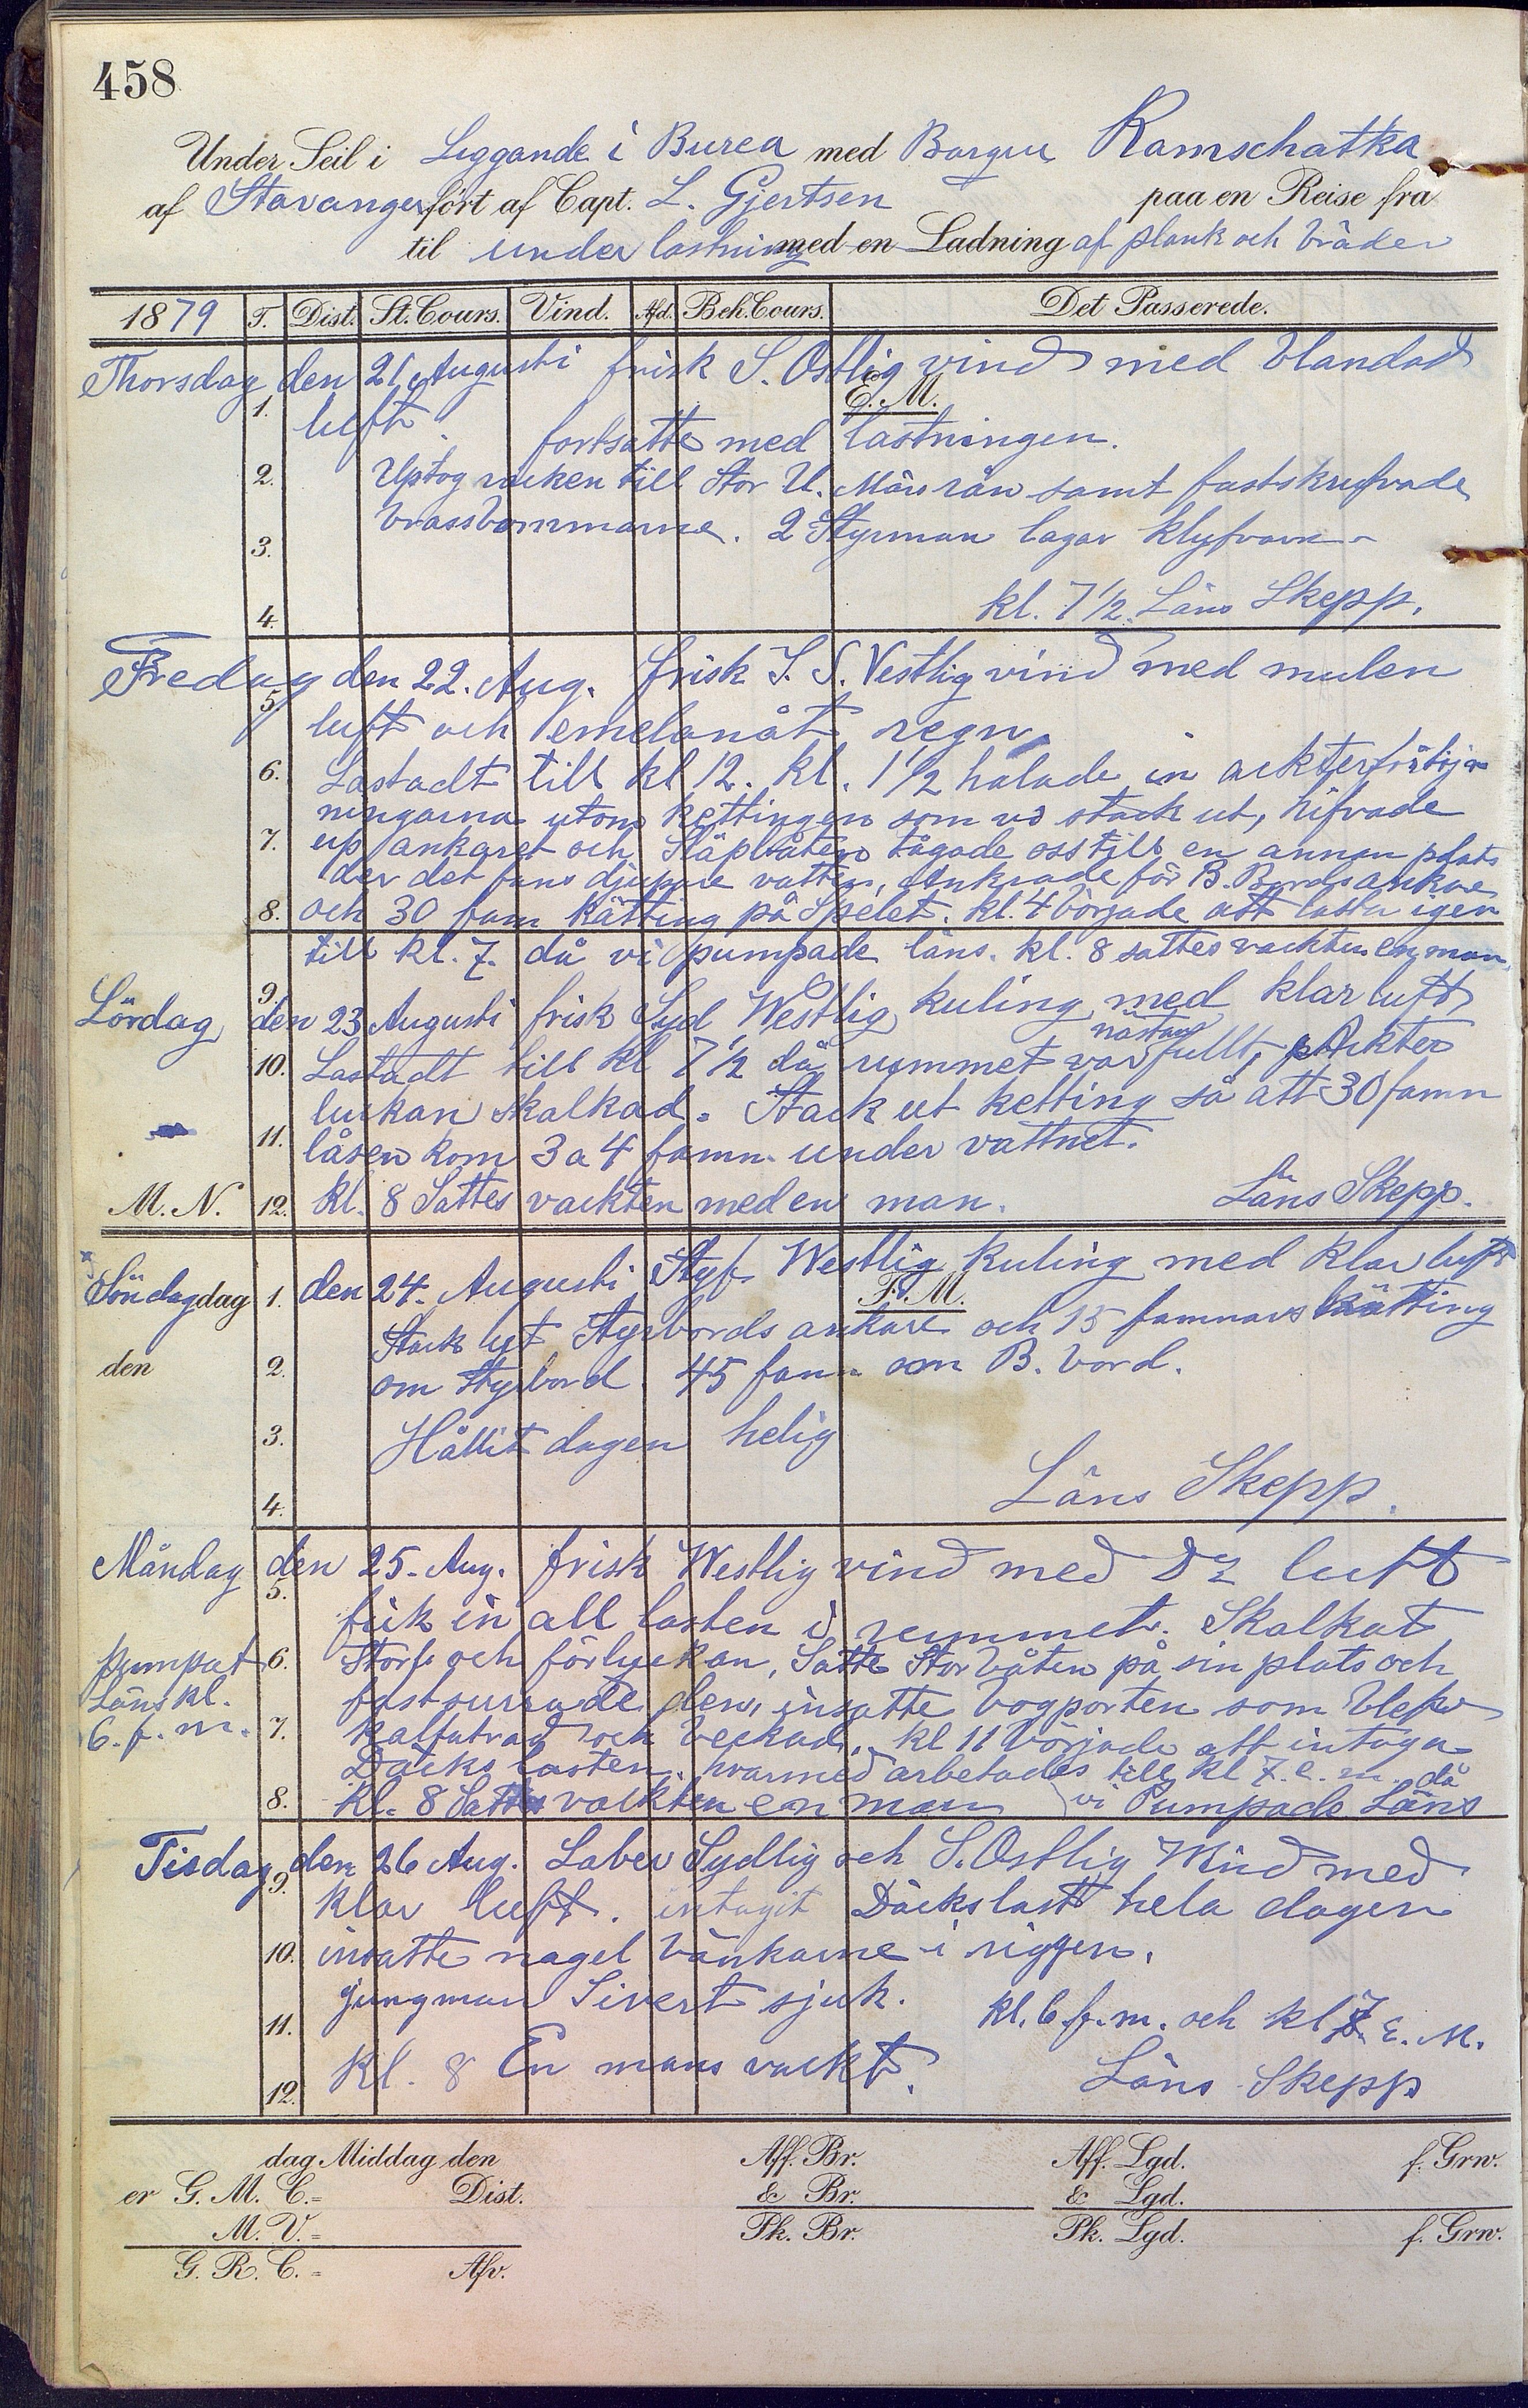 458
Under Seil i Leggande i Burea med Barque Kamschatka
af Stavanger fört af Capt. L. Gjertsen paa en Reise fra
til under lastning med en Ladning af plank och bräder
1879 T. Dist. St. Cours. Vind. Afd. Beh. Cours. Det Passerede.
Thorsdag den 21 Augusti frisk S. Ostlig vind med blandad
E. M.
1. luft fortsatte med lastningen.
2. Uptog racken till Stor U. Märs rån samt fastskrufvade
brassbommarne. 2 Styrman lagar klyfvaren
3.
4. kl. 7 1/2. Läns Skepp.
Fredag den 22. Aug. frisk S. S. Vestlig vind med mulen
5. luft och emelanåt regn.
6. Lastadt till kl 12. kl. 1 1/2 halade in ackterförtöj-
ningarna utom kettingen som vi stack ut, hifvade
7. up ankaret och Släpbåten tågade oss till en annan plats
der det fans djupare vatten, Ankrade för B. Bords ankare
8. och 30 famn kätting på Spelet. kl. 4 började att lasta igen
till kl. 7. då vi pumpade läns. kl. 8 sattes vackten en man.
9.
Lördag den 23 Augusti frisk Syd Westlig kuling med klar luft
nästan
10. Lastadt till kl 7 1/2 då rummet var fullt, Ackter
luckan skalkad. Stack ut ketting så att 30 famn
11. låsen kom 3 a 4 famn under vattnet.
M. N. 12. kl. 8 Sattes vackten med en man. Läns Skepp.
Söndag dag 1. den 24. Augusti Styf Westlig kuling med klar luft
F. M.
Stack ut Styrbords ankare och 15 famnars kätting
den 2. om Styrbord 45 famn om B. bord.
3. Hållit dagen helig
4. Läns Skepp.
Måndag den 25. Aug. frisk Westlig vind med Do luft
5. fick in all lasten i rummet. Skalkat
pumpat 6. Stor och förluckan, Satte Storbåten på sin plats och
Läns kl. fastsurrade den, insatte bogporten som blef
6. f. m. 7. kalfatrad och beckad. kl 11 började att intaga
Däcks lasten, hvarmed arbetades till kl 7. e. m. då
8. kl. 8 Satte vackten en man vi Pumpade Läns
Tisdag den 26 Aug. Laber Sydlig och S. Ostlig Wind med
9. klar luft. intagit Däckslast hela dagen
10. insatte nagel bänkarne i riggen.
jungman Sivert sjuk.
11. kl. 6 f. m. och kl 7. E. M.
12. kl. 8 En mans vackt. Läns Skepp
dag Middag den Aff. Br. Aff. Lgd. f. Grw.
er G. M. C.= Dist. & Br. & Lgd.
M. V.= Pk. Br. Pk. Lgd. f. Grw.
G. R. C.= Afv.